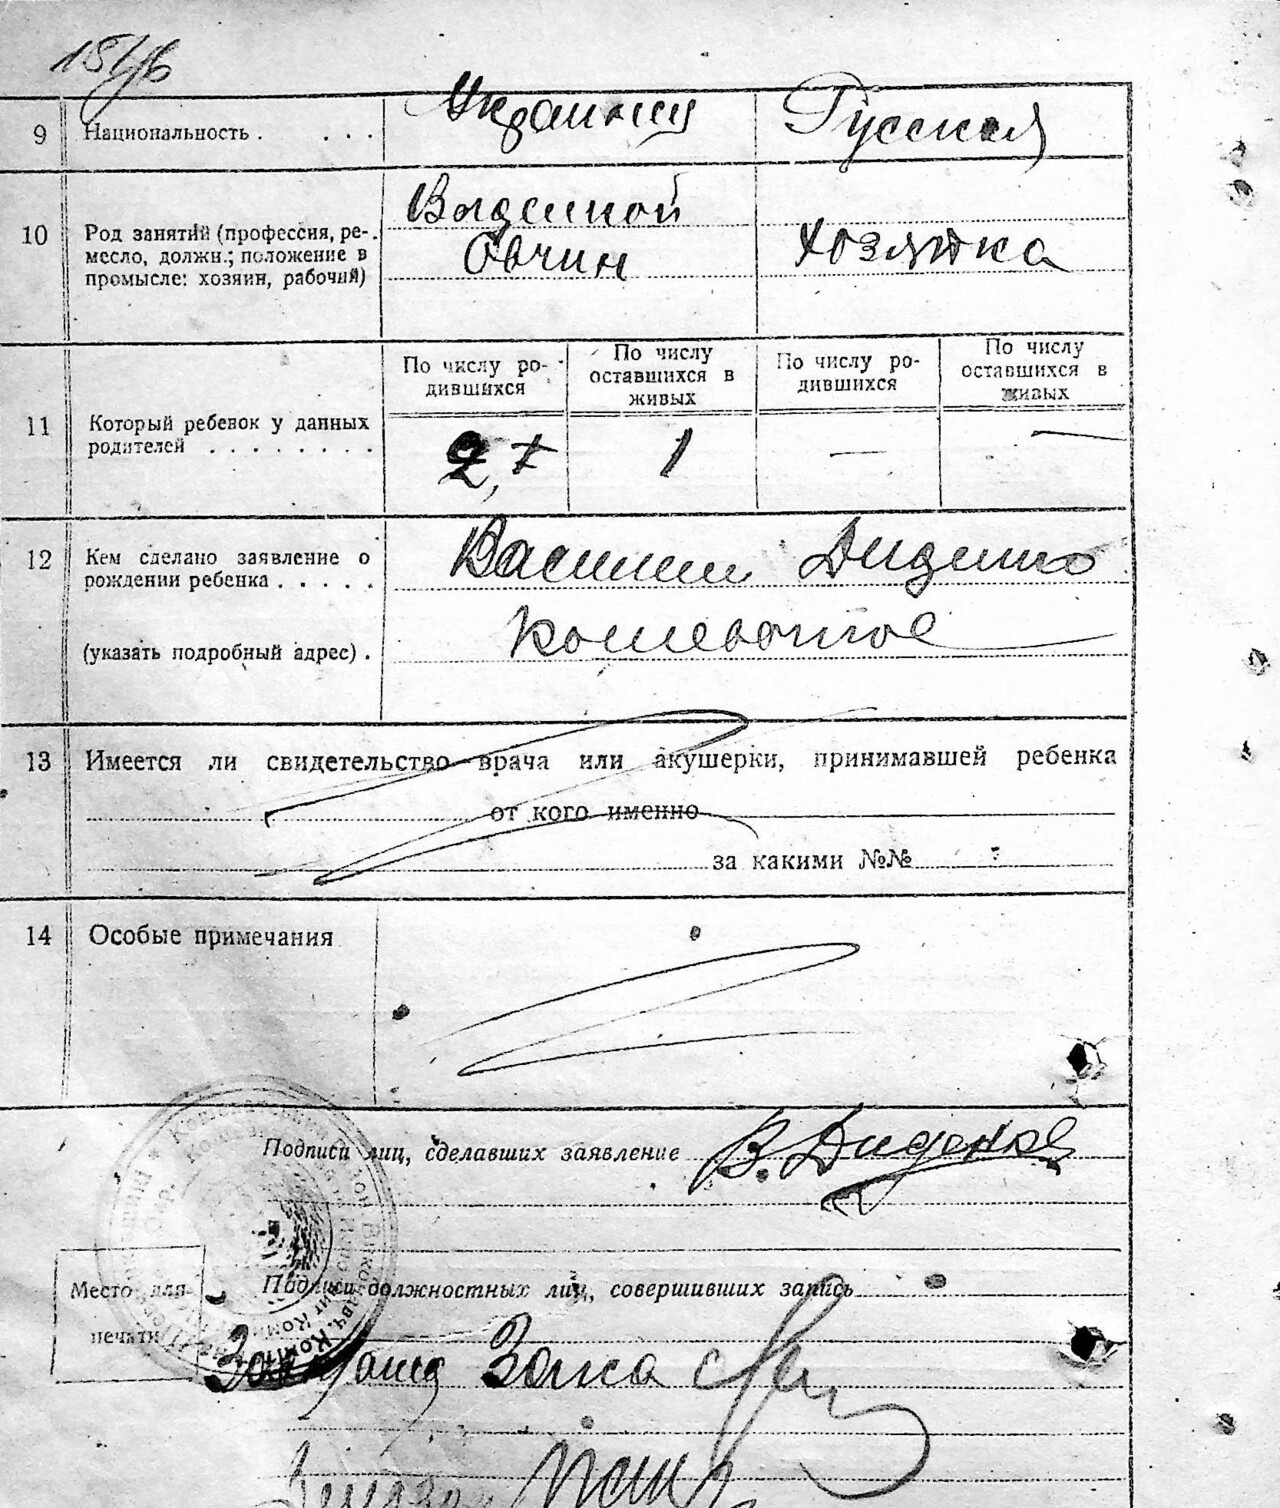 9 Национальность . . . . Украинец Русская
10 Род занятий (профессия, ре-
месло, должн.; положение в
промысле: хозяин, рабочий)
Выделкой
Овчин
Хозяйка
11 Который ребенок у данных
родителей . . . . . . . .
По числу ро-
дившихся
По числу
оставшихся в
живых
По числу ро-
дившихся
По числу
оставшихся в
живых
2, 1 — —
12 Кем сделано заявление о
рождении ребенка . . . . .
(указать подробный адрес) .
Василий Диденко
13 Имеется ли свидетельство врача или акушерки, принимавшей ребенка
от кого именно
за какими №№
14 Особые примечания
Подписи лиц, сделавших заявление В. Диденко
Подписи должностных лиц, совершивших запись
Место для
печати